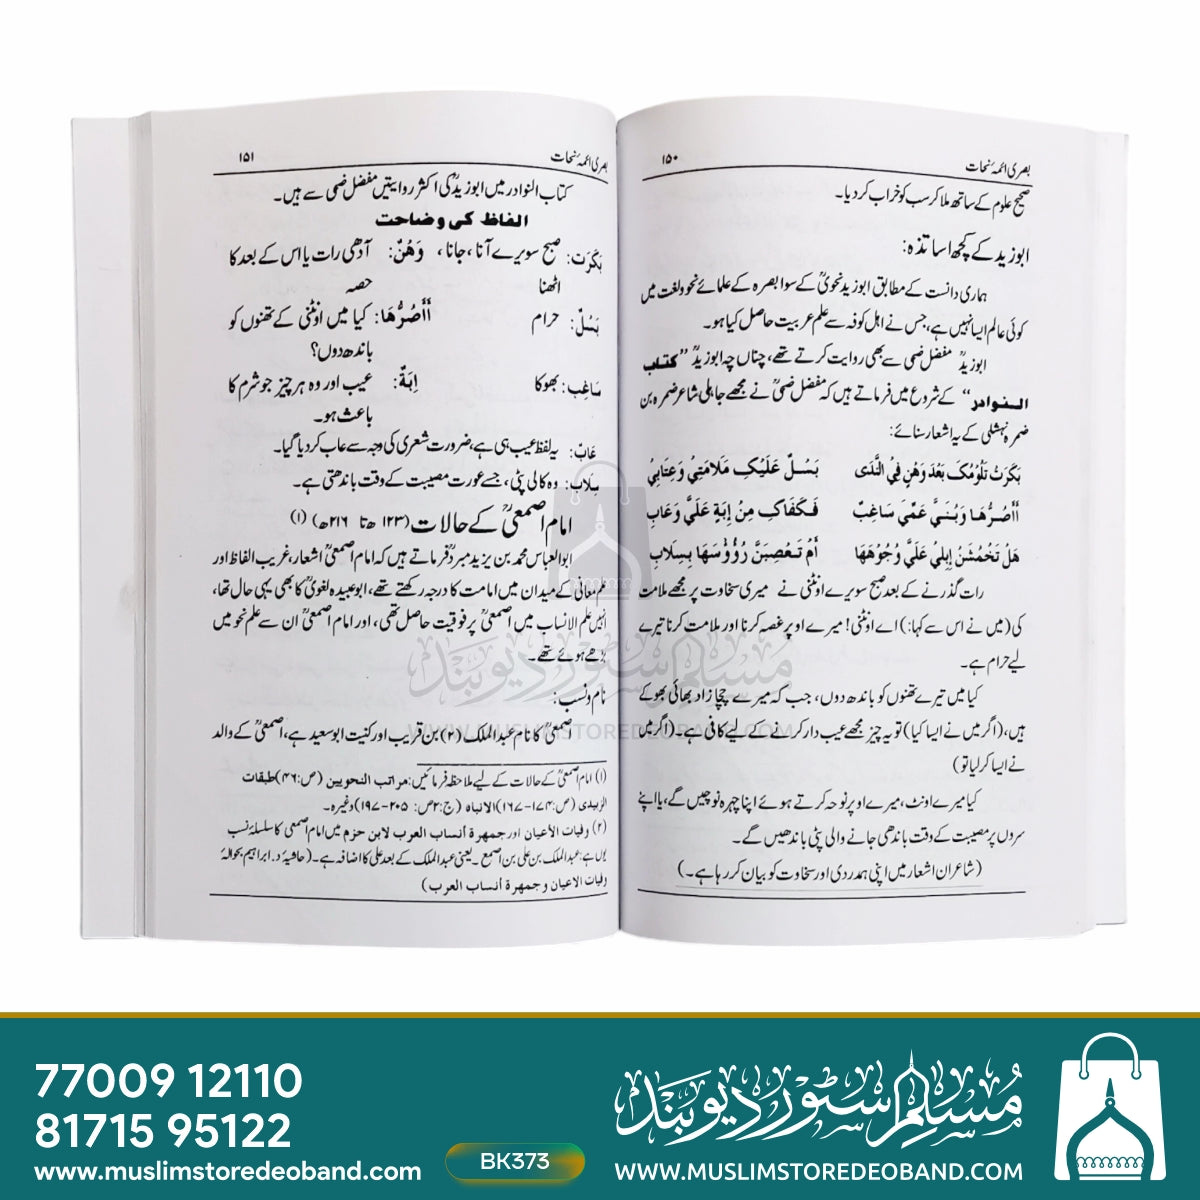 بصری ائمۂ نحات ۱۵۰
صحیح علوم کے ساتھ ملا کر سب کو خراب کر دیا۔
ابوزید کے کچھ اساتذہ:
ہماری دانست کے مطابق ابوزید نحویؒ کے سوا بصرہ کے علمائے نحو ولغت میں
کوئی عالم ایسا نہیں ہے، جس نے اہل کوفہ سے علم عربیت حاصل کیا ہو۔
ابوزیدؒ مفضل ضمی سے بھی روایت کرتے تھے، چناں چہ ابوزیدؒ ’’کتاب
النوادر‘‘ کے شروع میں فرماتے ہیں کہ مفضل ضمیؒ نے مجھے جاہلی شاعر ضمرہ بن
ضمرہ نہشلی کے یہ اشعار سنائے:
بَكَرَتْ تَلُوْمُكَ بَعْدَ وَهْنٍ فِي النَّدَى بَسْلٌ عَلَيْكِ مَلَامَتِيْ وَعِتَابِيْ
أَأَصُرُّهَا وَبُنَيُّ عَمِّي سَاغِبٌ فَكَفَاكِ مِنْ إِبَةٍ عَلَيَّ وَعَابِ
هَلْ تَخْمُشَنْ إِبِلِيْ عَلَيَّ وُجُوْهَهَا أَمْ تَعْصِبَنَّ رُؤُوْسَهَا بِسِلَابِ
رات گذرنے کے بعد صبح سویرے اونٹنی نے میری سخاوت پر مجھے ملامت
کی (میں نے اس سے کہا:) اے اونٹنی! میرے اوپر غصہ کرنا اور ملامت کرنا تیرے
لیے حرام ہے۔
کیا میں تیرے تھنوں کو باندھ دوں، جب کہ میرے چچا زاد بھائی بھوکے
ہیں، (اگر میں نے ایسا کیا) تو یہ چیز مجھے عیب دار کرنے کے لیے کافی ہے۔ (اگر میں
نے ایسا کر لیا تو)
کیا میرے اونٹ، میرے اوپر نوحہ کرتے ہوئے اپنا چہرہ نوچیں گے، یا اپنے
سروں پر مصیبت کے وقت باندھی جانے والی پٹی باندھیں گے۔
(شاعر ان اشعار میں اپنی ہمدردی اور سخاوت کو بیان کر رہا ہے۔)
بصری ائمۂ نحات ۱۵۱
کتاب النوادر میں ابوزیدؒ کی اکثر روایتیں مفضل ضمی سے ہیں۔
الفاظ کی وضاحت
بَكَرَت: صبح سویرے آنا، جانا، وَهْنٌ: آدھی رات یا اس کے بعد کا
اٹھنا حصہ
بَسْلٌ: حرام أَأَصُرُّهَا: کیا میں اونٹنی کے تھنوں کو
باندھ دوں؟
سَاغِب: بھوکا إِبَةٌ: عیب اور وہ ہر چیز جو شرم کا
باعث ہو۔
عَابٌ: یہ لفظ عیب ہی ہے، ضرورت شعری کی وجہ سے عاب کر دیا گیا۔
سِلاب: وہ کالی پٹی، جسے عورت مصیبت کے وقت باندھتی ہے۔
امام اصمعیؒ کے حالات (۱۲۳ھ تا ۲۱۶ھ) (۱)
ابوالعباس محمد بن یزید مبردؒ فرماتے ہیں کہ امام اصمعیؒ اشعار، غریب الفاظ اور
علم معانی کے میدان میں امامت کا درجہ رکھتے تھے، ابوعبیدہ لغویؒ کا بھی یہی حال تھا،
انہیں علم الانساب میں اصمعیؒ پر فوقیت حاصل تھی، اور امام اصمعیؒ ان سے علم نحو میں
بڑھے ہوئے تھے۔
نام ونسب:
اصمعیؒ کا نام عبدالملک (۲) بن قریب اور کنیت ابوسعید ہے، اصمعیؒ کے والد
(۱) امام اصمعیؒ کے حالات کے لیے ملاحظہ فرمائیں: مراتب النحویین (ص:۴۶) طبقات
الزبیدی (ص:۱۷۴-۱۶۷) الانباہ (ج:۲ ص: ۲۰۵-۱۹۷) وغیرہ۔
(۲) وفيات الأعيان اور جمهرة أنساب العرب لابن حزم میں امام اصمعی کا سلسلۂ نسب
یوں ہے: عبدالملک بن علی بن اصمع۔ یعنی عبدالملک کے بعد علی کا اضافہ ہے۔ (حاشیہ د۔ ابراہیم بحوالۂ
وفيات الاعيان و جمهرة أنساب العرب)
مسلم سٹور دیوبند
WWW.MUSLIMSTOREDEOBAND.COM
77009 12110
81715 95122
www.muslimstoredeoband.com
BK373
مسلم سٹور دیوبند
WWW.MUSLIMSTOREDEOBAND.COM